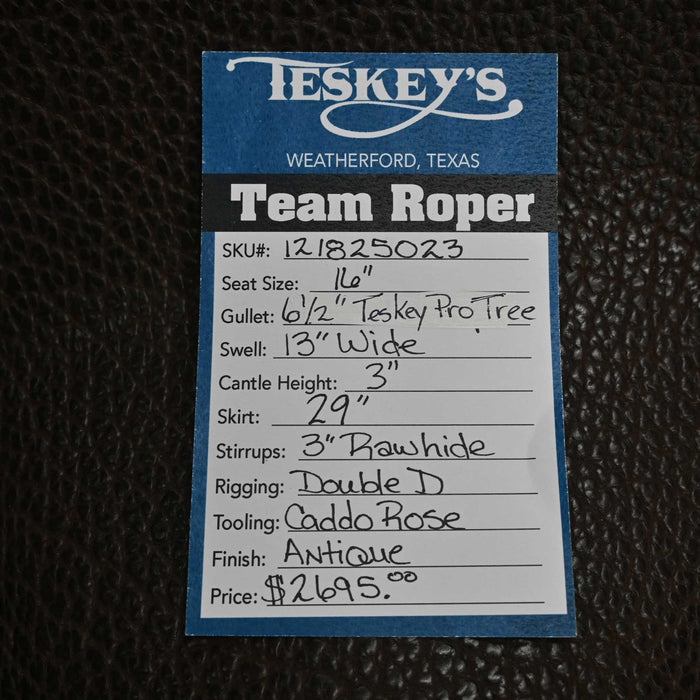 TESKEY'S
WEATHERFORD, TEXAS
Team Roper
SKU#: 121825023
Seat Size: 16"
Gullet: 6 1/2" Teskey Pro Tree
Swell: 13" Wide
Cantle Height: 3"
Skirt: 29"
Stirrups: 3" Rawhide
Rigging: Double D
Tooling: Caddo Rose
Finish: Antique
Price: $2695.00